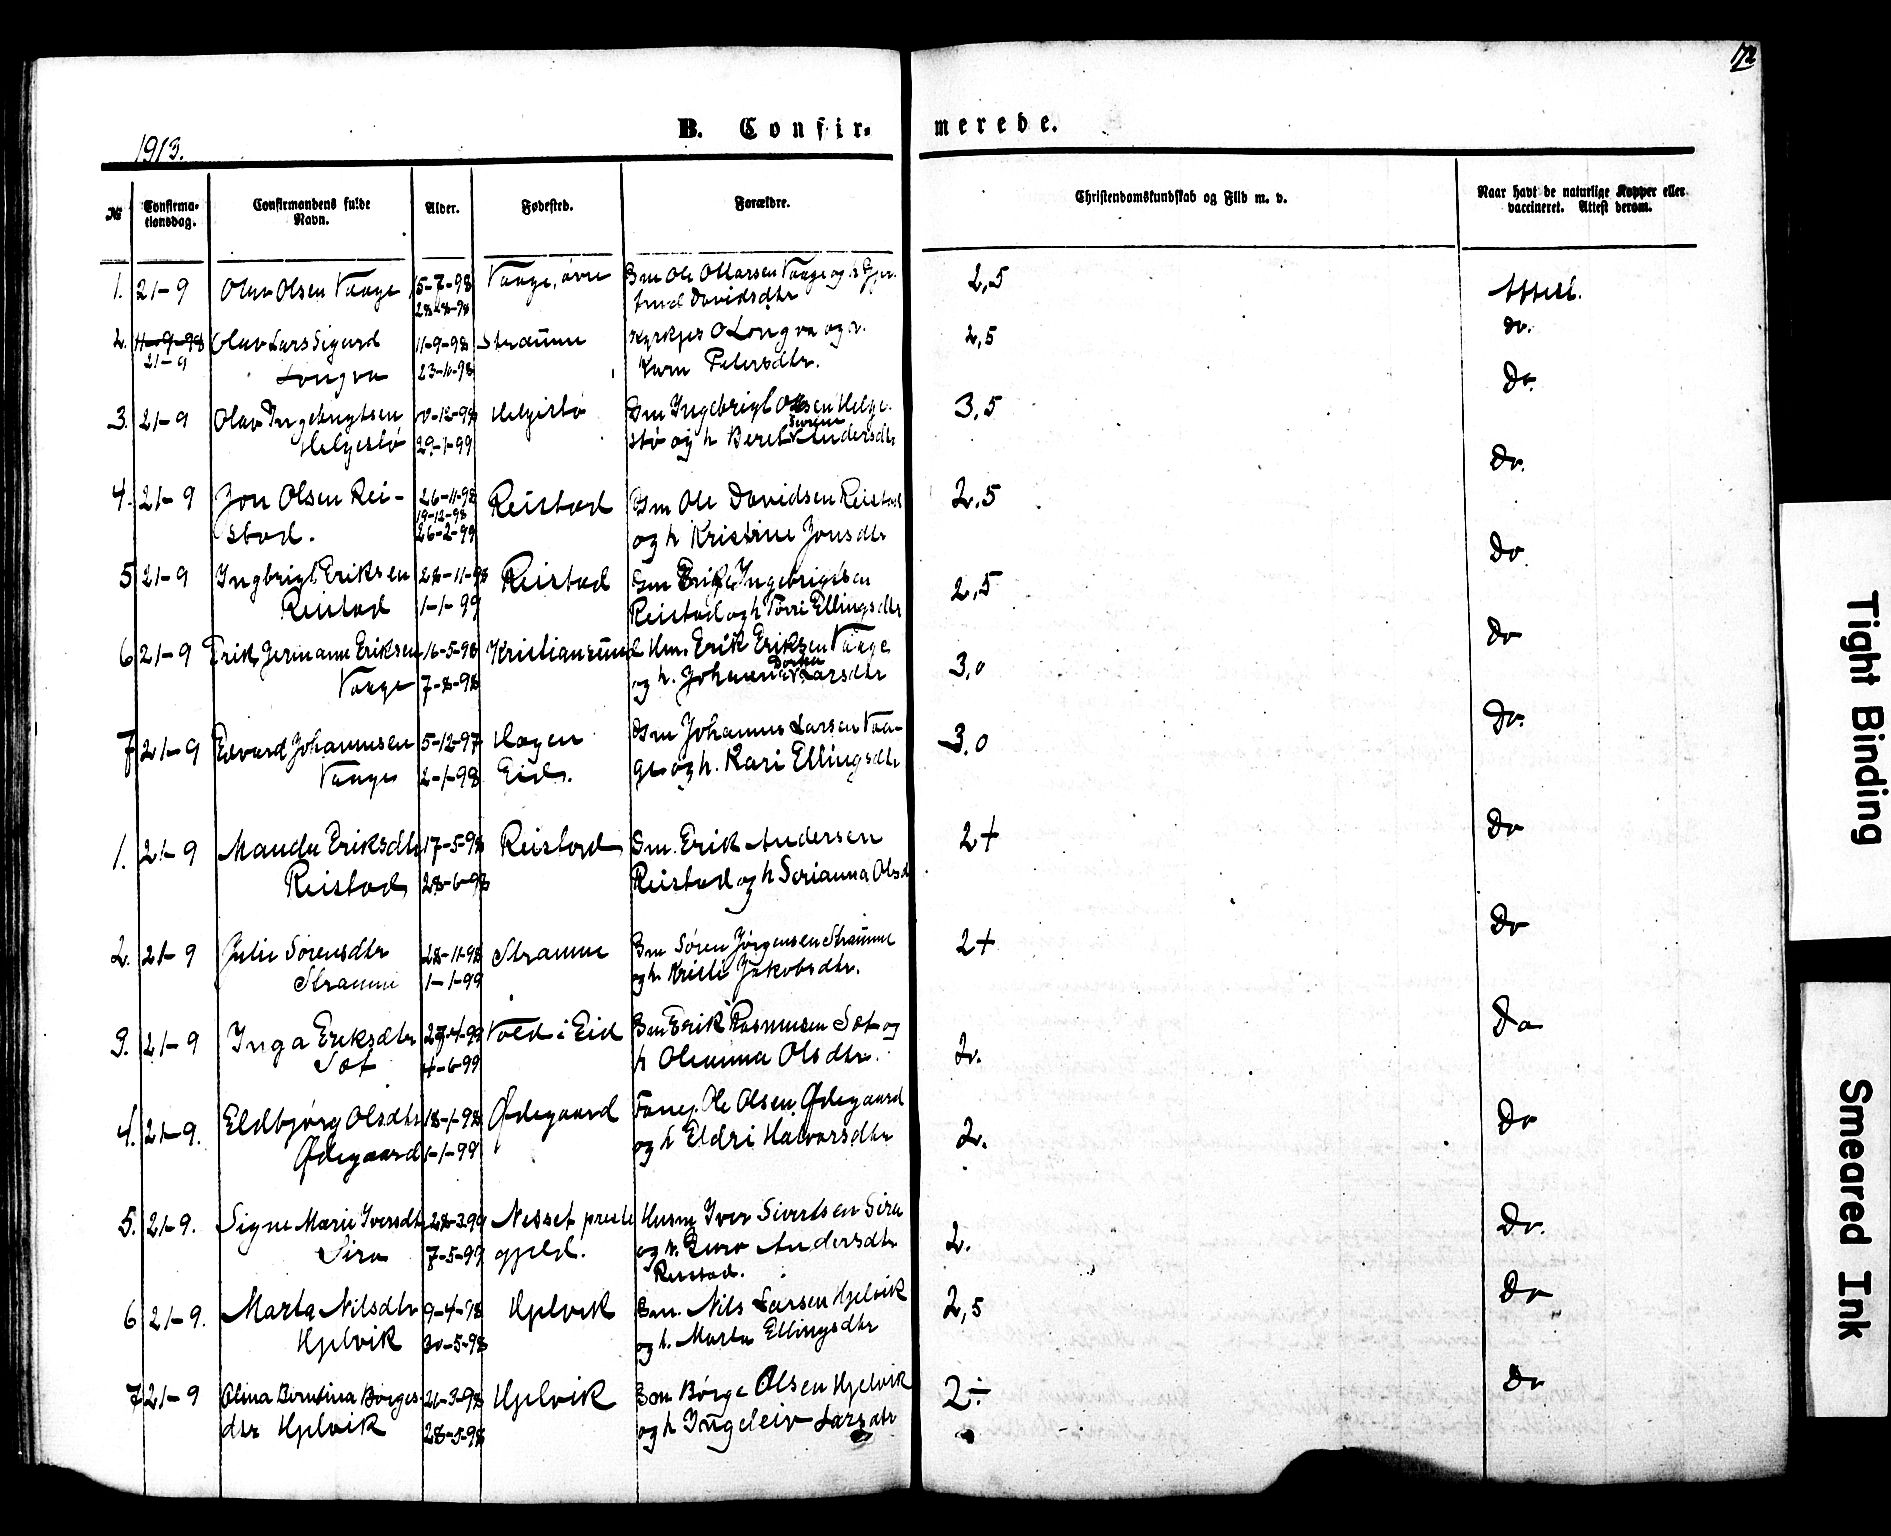 172
1913.
B. Confir-
merede.
№
Confirma-
tionsdag.
Confirmandens fulde
Navn.
Alder.
Fødested.
Forældre.
Christendomskundskab og Flid m. v.
Naar havt de naturlige Kopper eller
vaccineret. Attest derom.
1. 21-9 Olav Olsen Vaage 15-7-98 Vaage, øvre Bm Ole Ottarsen Vaage og h Gjer- 2,5 Attest.
28-8-98 trud Davidsdtr
2. 11-9-98 Olav Lars Sigurd 11-9-98 Straume O Longva og h. 2,5 do.
21-9 Longva 23-10-98 Karn Petersdtr.
3. 21-9 Olav Ingebrigtsen 10-12-98 Helgestø Bm Ingebrigt Olsen Helge- 3,5 Do.
Helgestø 29-1-99 stø og h Beret Serine Andersdtr
4. 21-9 Jon Olsen Rei- 26-11-98 Reistad Bm Ole Davidsen Reistad 2,5 Do.
stad. 19-12-98
26-2-99 og h Kristine Jonsdtr
5 21-9 Ingbrigt Eriksen 28-11-98 Reistad Bm Erik Ingebrigtsen 2,5 Do
Reistad 1-1-99 Reistad og h Torri Ellingsdtr
6 21-9 Erik Germann Eriksen 16-5-98 Kristiansund Hm. Erik Eriksen Vaage 3,0 Do
Vaage 7-8-98 og h. Johanne Dorthea Larsdtr
7 21-9 Edvard Johannesen 5-12-97 Hagen Bm Johannes Larsen Vaa- 3,0 Do.
Vaage 2-1-98 Eid. ge og h. Kari Ellingsdtr
1. 21-9 Mandu Eriksdtr 17-5-98 Reistad Bm. Erik Andersen 2+ Do
Reistad 28-6-98 Reistad og h Serianna Olsd
2. 21-9 Julie Sørensdtr 28-11-98 Straume Bm Søren Jørgensen Straume 2+ Do
Straume 1-1-99 og h Kristi Jakobsdtr.
3. 21-9 Inga Eriksdtr 27-4-99 Vold i Eid Bm Erik Rasmusen Sæt og 2. Do
Sæt 4-6-99 h Olianna Olsdtr.
4. 21-9. Eldbjørg Olsdtr 18-1-98 Ødegaard Forp. Ole Olsen Ødegaard 2. Do
Ødegaard 1-1-99 og h Eldri Halvorsdtr
5. 21-9. Signe Marie Iversdtr 28-3-99 Nesset preste Husm Iver Sivertsen Sira 2. Do.
Sira 7-5-99 gjeld. og h. Guro Andersdtr
Reistad.
6 21-9. Marta Nilsdtr 9-4-98 Hjelvik Bm. Nils Larsen Hjelvik 2,5 Do
Hjelvik 30-5-98 og h. Marta Ellingsdtr
7 21-9 Olina Berntina Børges- 21-3-98 Hjelvik Bm Børge Olsen Hjelvik 2÷ Do
dtr Hjelvik 28-5-98 og h Ingeleiv Larsdtr
Tight Binding
Smeared Ink